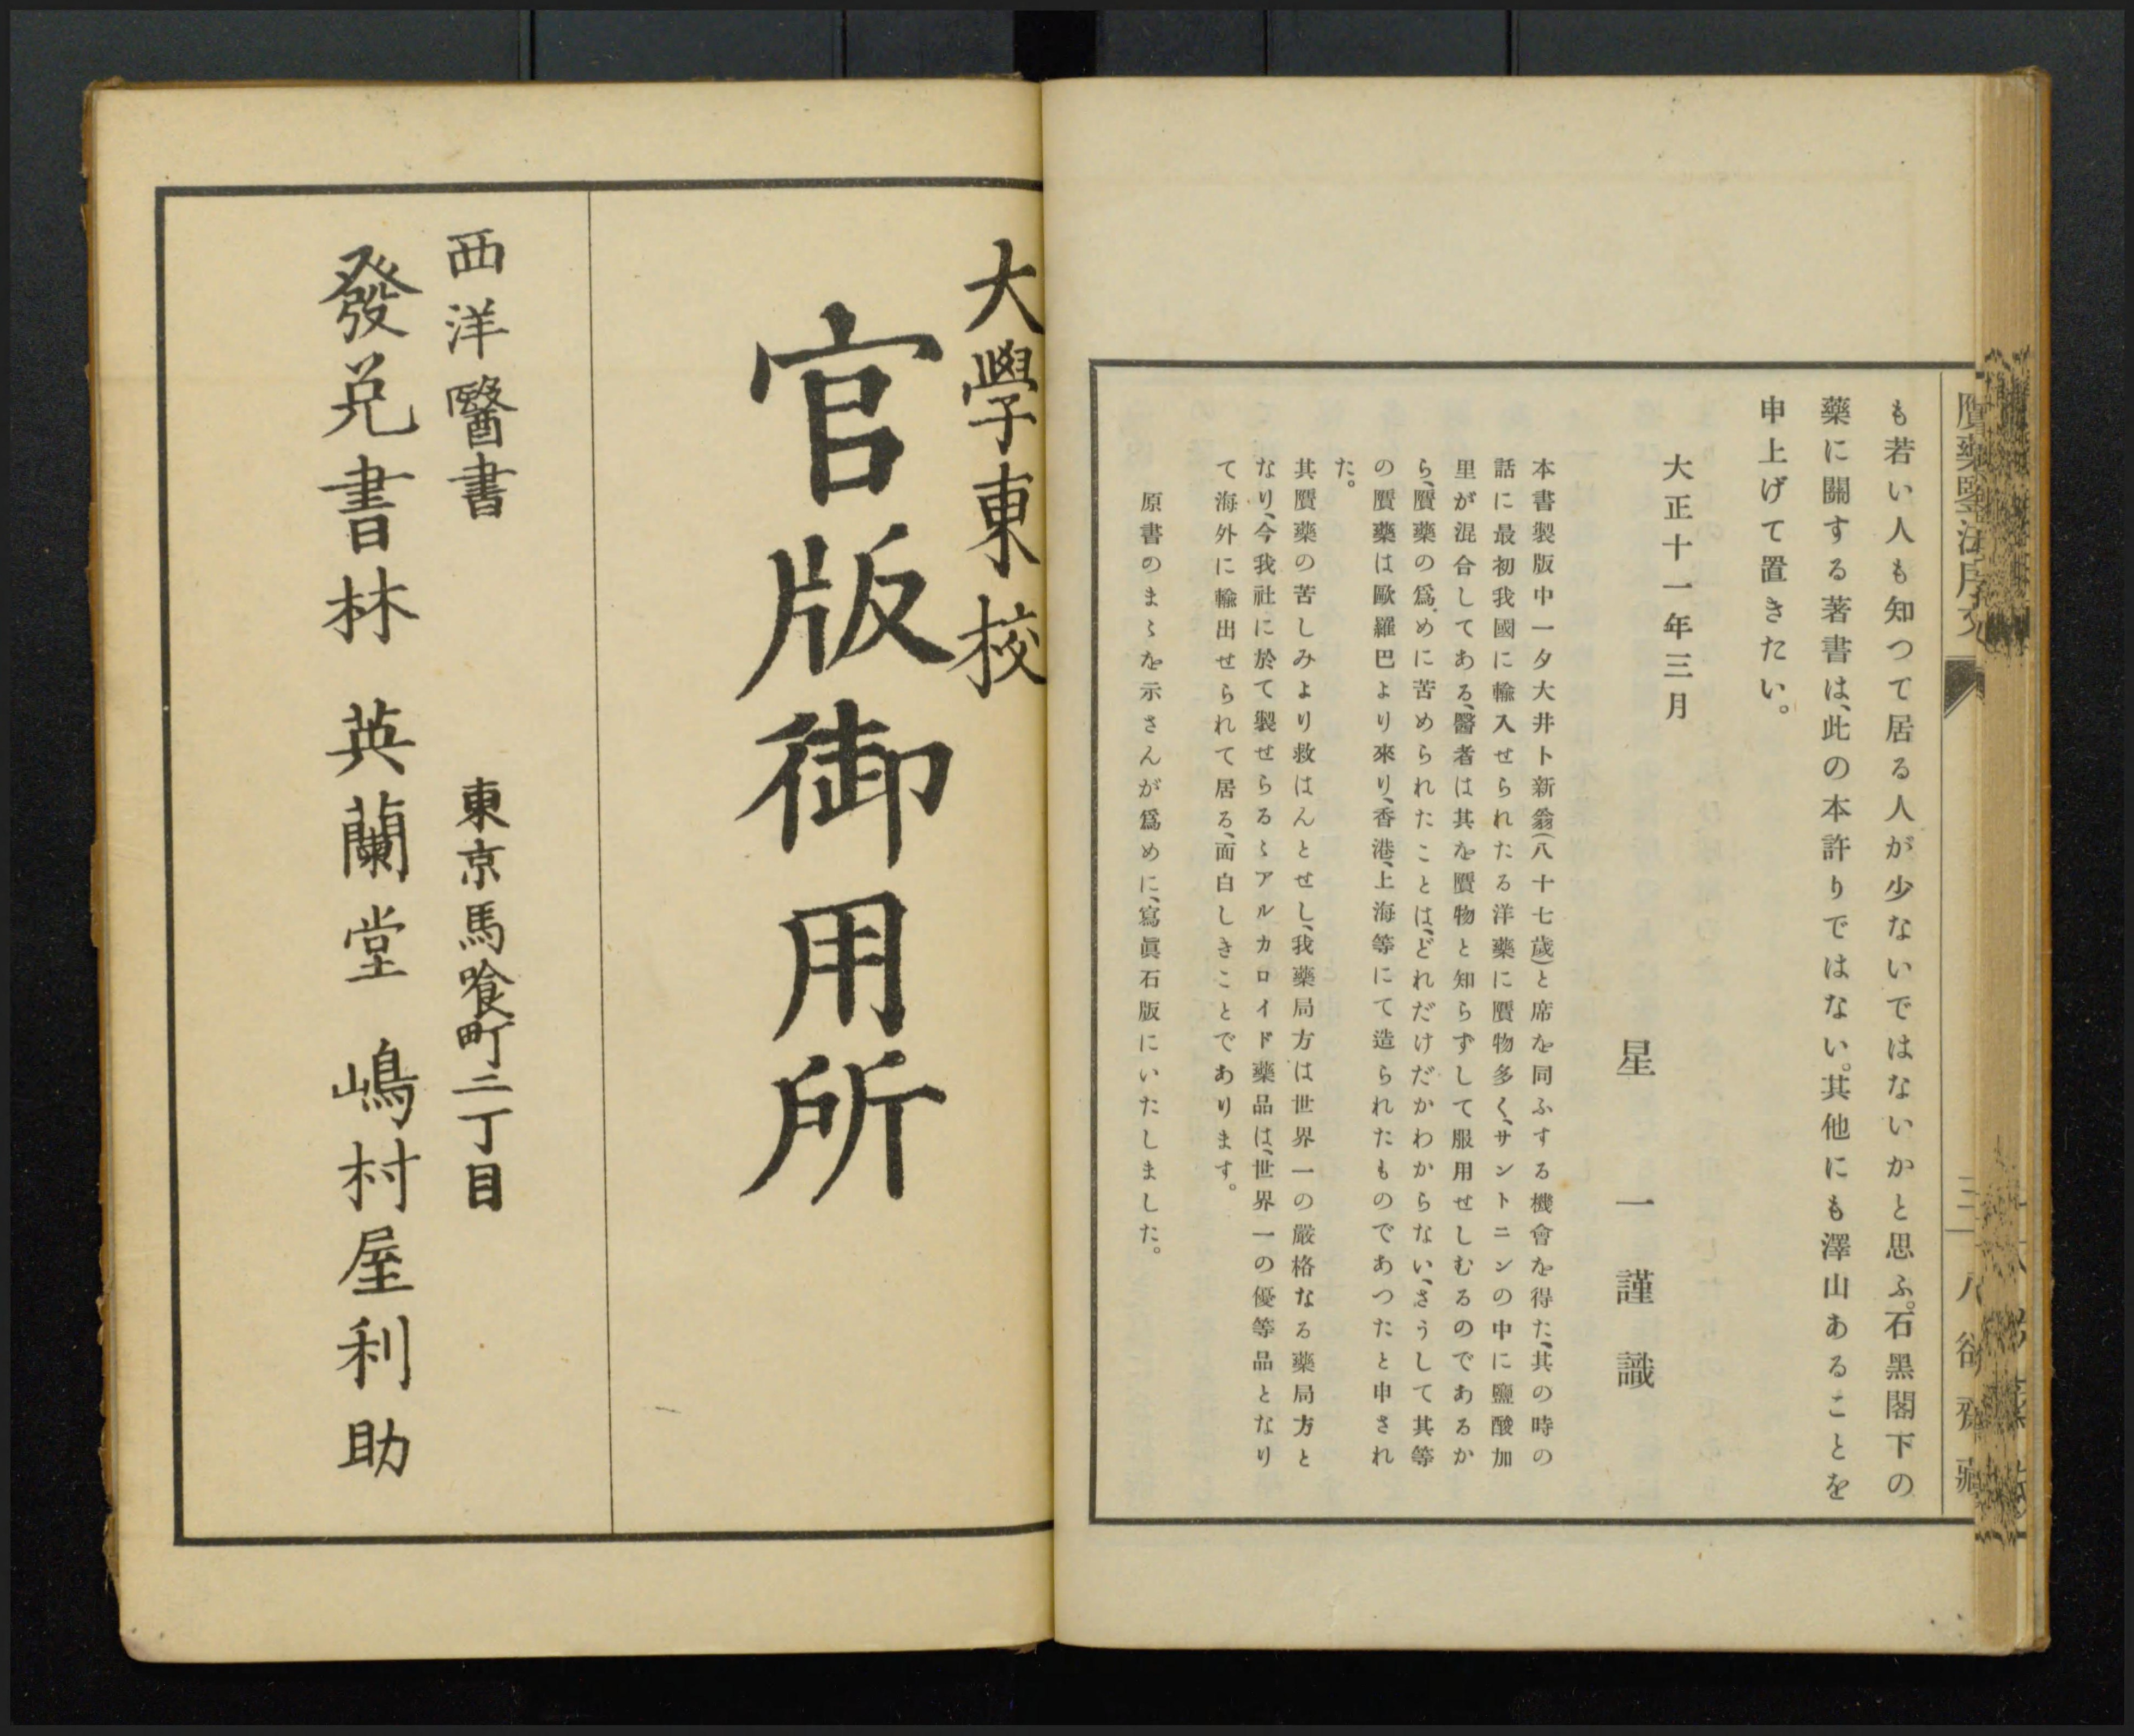 贋藥鑒法序文
三
八
藏
も若い人も知つて居る人が少ないではないかと思ふ。石黑閣下の
藥に關する著書は、此の本許りではない。其他にも澤山あることを
申上げて置きたい。
大正十一年三月
星一謹識
本書製版中一夕大井卜新翁(八十七歲)と席を同ふする機會を得た、其の時の
話に最初我國に輸入せられたる洋藥に贋物多く、サントニンの中に鹽酸加
里が混合してある、醫者は其を贋物と知らずして服用せしむるのであるか
ら、贋藥の爲めに苦められたことは、どれだけだかわからない、さうして其等
の贋藥は歐羅巴より來り、香港、上海等にて造られたものであつたと申され
た。
其贋藥の苦しみより救はんとせし、我藥局方は世界一の嚴格なる藥局方と
なり、今我社に於て製せらるゝアルカロイド藥品は、世界一の優等品となり
て海外に輸出せられて居る、面白しきことであります。
原書のまゝを示さんが爲めに、寫眞石版にいたしました。
大學東校
官版御用所
西洋醫書 東京馬喰町二丁目
發兌書林 英蘭堂 嶋村屋利助